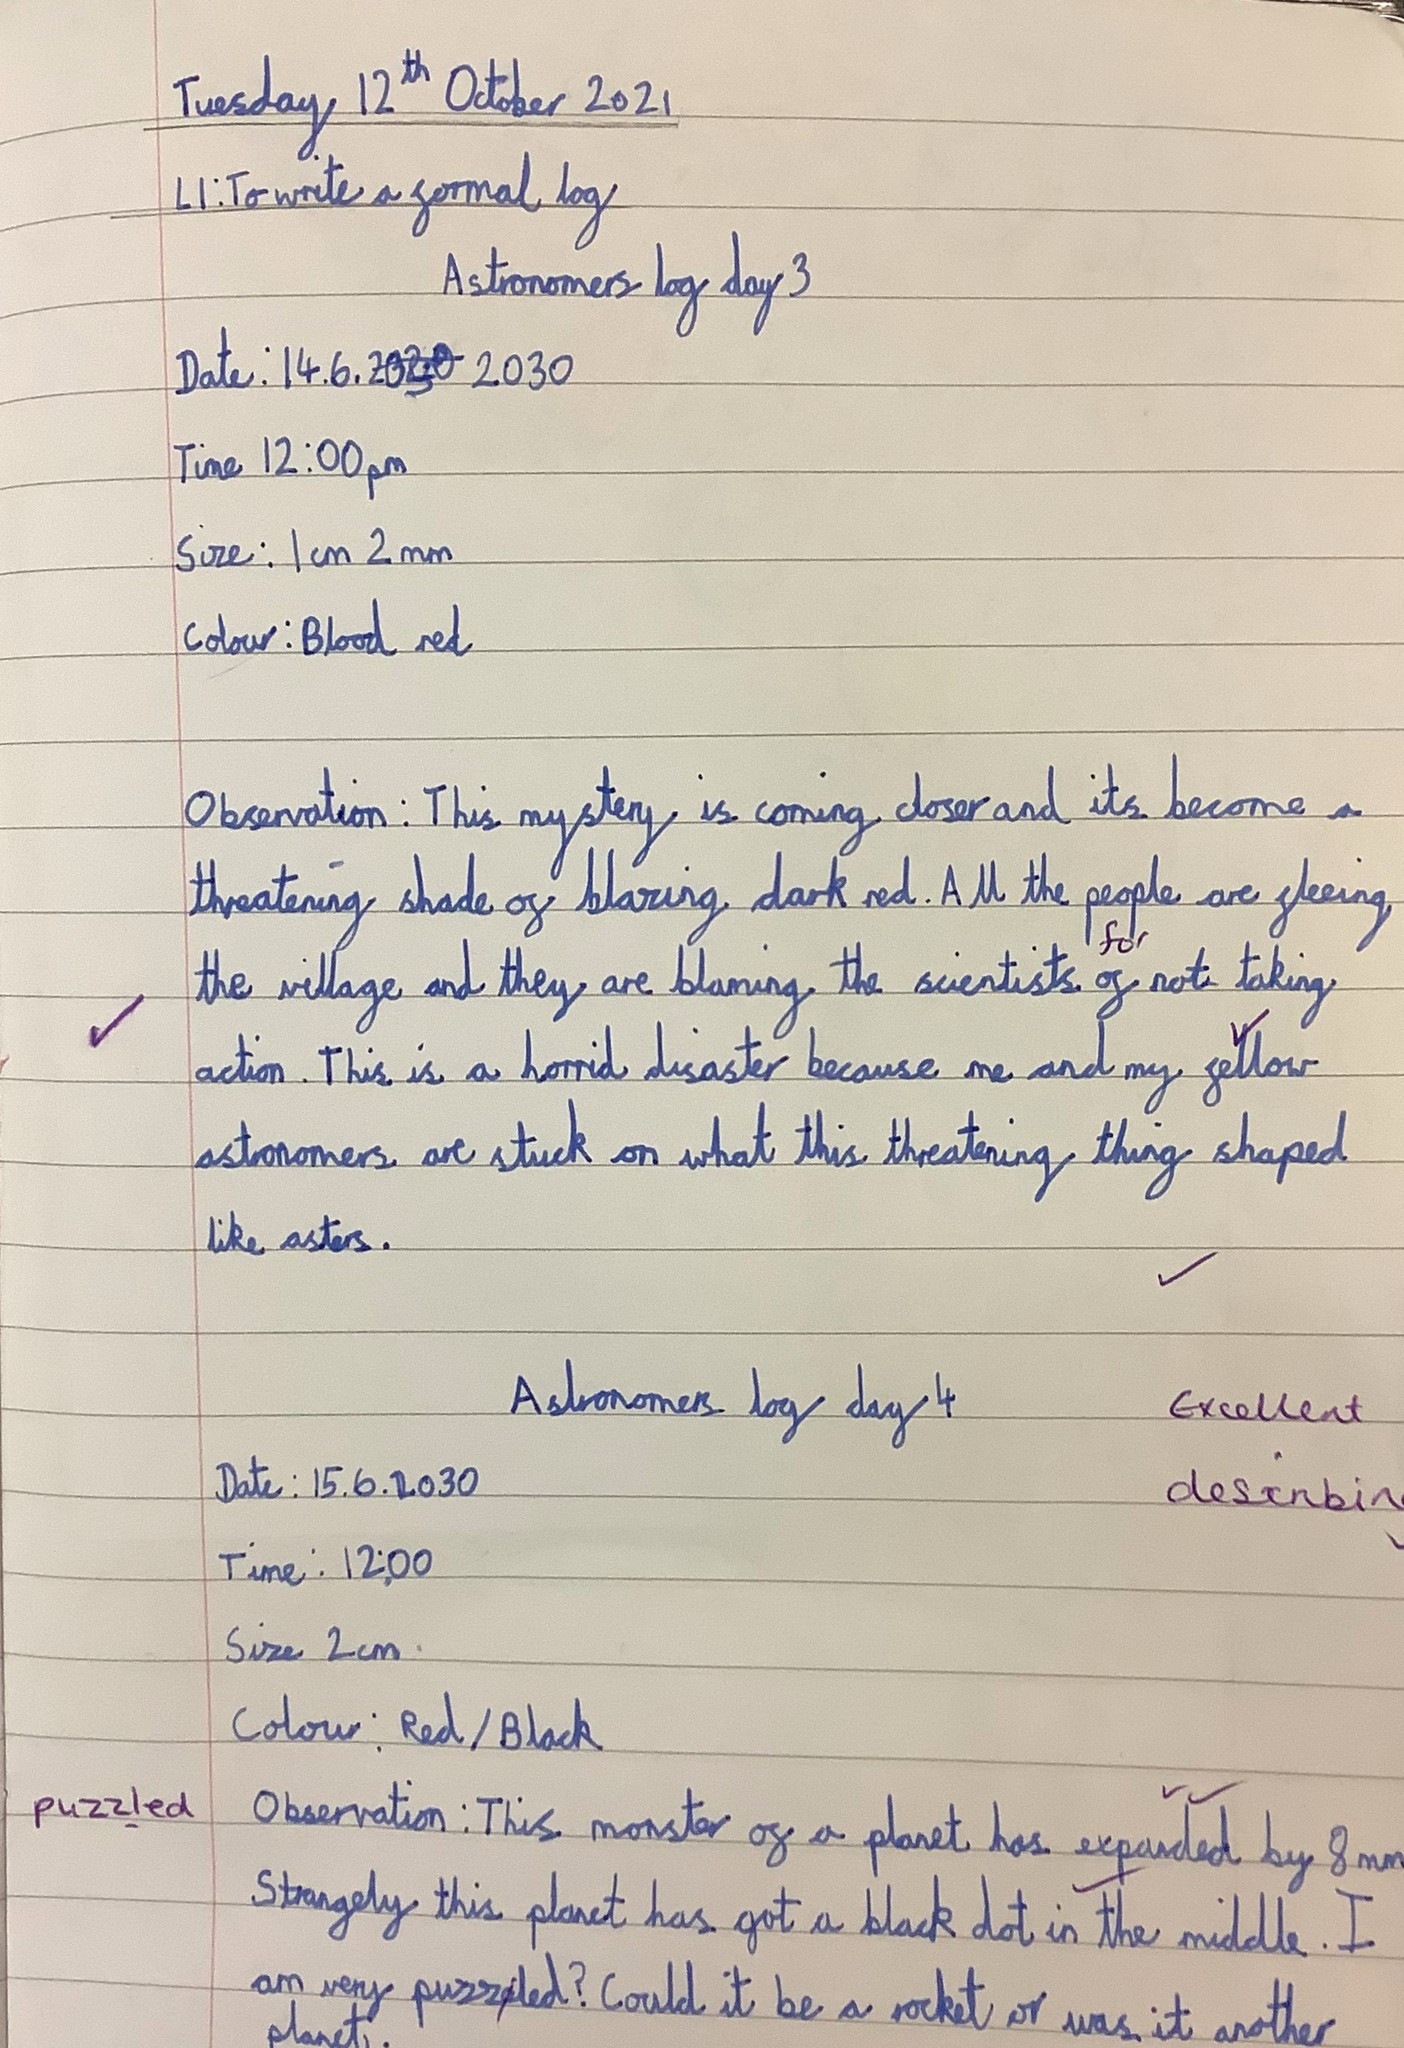 Tuesday 12th October 2021
LI: To write a formal log
Astronomers log day 3
Date: 14.6. 2030
Time 12:00pm
Size: 1cm 2mm
Colour: Blood red
Observation: This mystery is coming closer and its become a
threatening shade of blazing dark red. All the people are fleeing
for
the village and they are blaming the scientists of not taking
action. This is a horrid disaster because me and my fellow
astronomers are stuck on what this threatening thing shaped
like asters.
Astronomers log day 4
Excellent
Date: 15.6.2030
describing
Time: 12:00
Size 2cm.
Colour: Red/Black
puzzled
Observation: This monster of a planet has expanded by 8mm
Strangely this planet has got a black dot in the middle. I
am very puzzled? Could it be a rocket or was it another
planet.